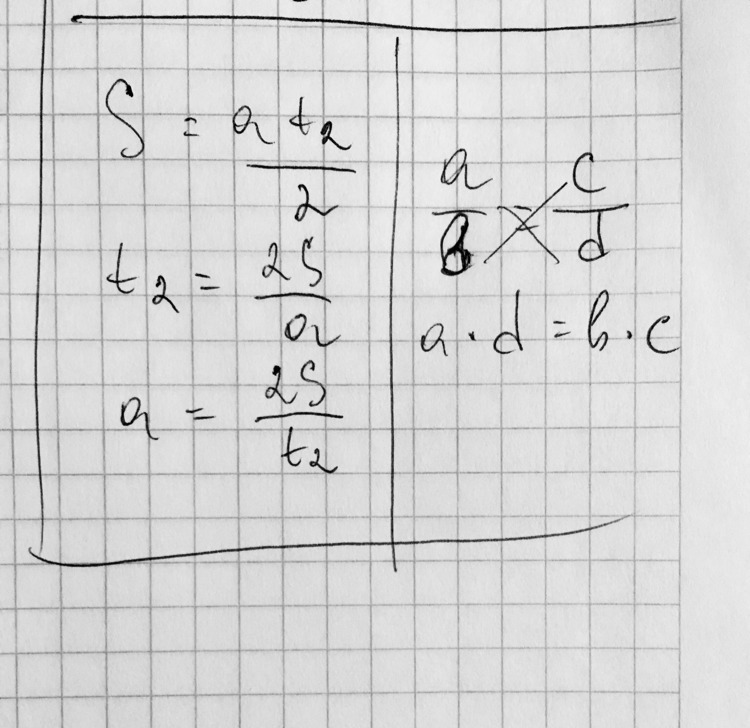 S = a t₂ / 2
t₂ = 2S / a
a = 2S / t₂
a / b = c / d
a · d = b · c